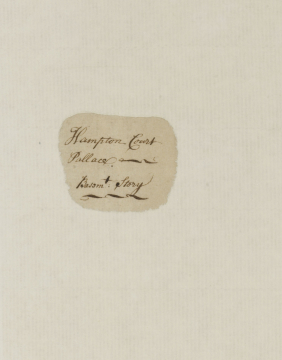 Hampton Court
Pallace
Basmt. Story